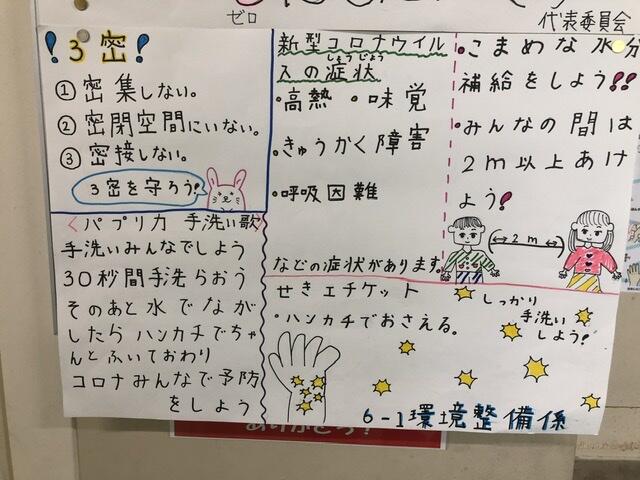 ゼロ
代表委員会
!3密!
①密集しない。
②密閉空間にいない。
③密接しない。
3密を守ろう!
<パプリカ 手洗い歌>
手洗いみんなでしよう
30秒間手洗らおう
そのあと水でなが
したらハンカチでちゃ
んとふいておわり
コロナみんなで予防
をしよう
新型コロナウイル
しょうじょう
スの症状
・高熱 ・味覚
・きゅうかく障害
・呼吸因難
などの症状があります。
・こまめな水分
補給をしよう!!
・みんなの間は
2m以上あけ
よう!
2m
せきエチケット
・ハンカチでおさえる。
しっかり
手洗い
しよう!
6-1環境整備係
ありがとう!